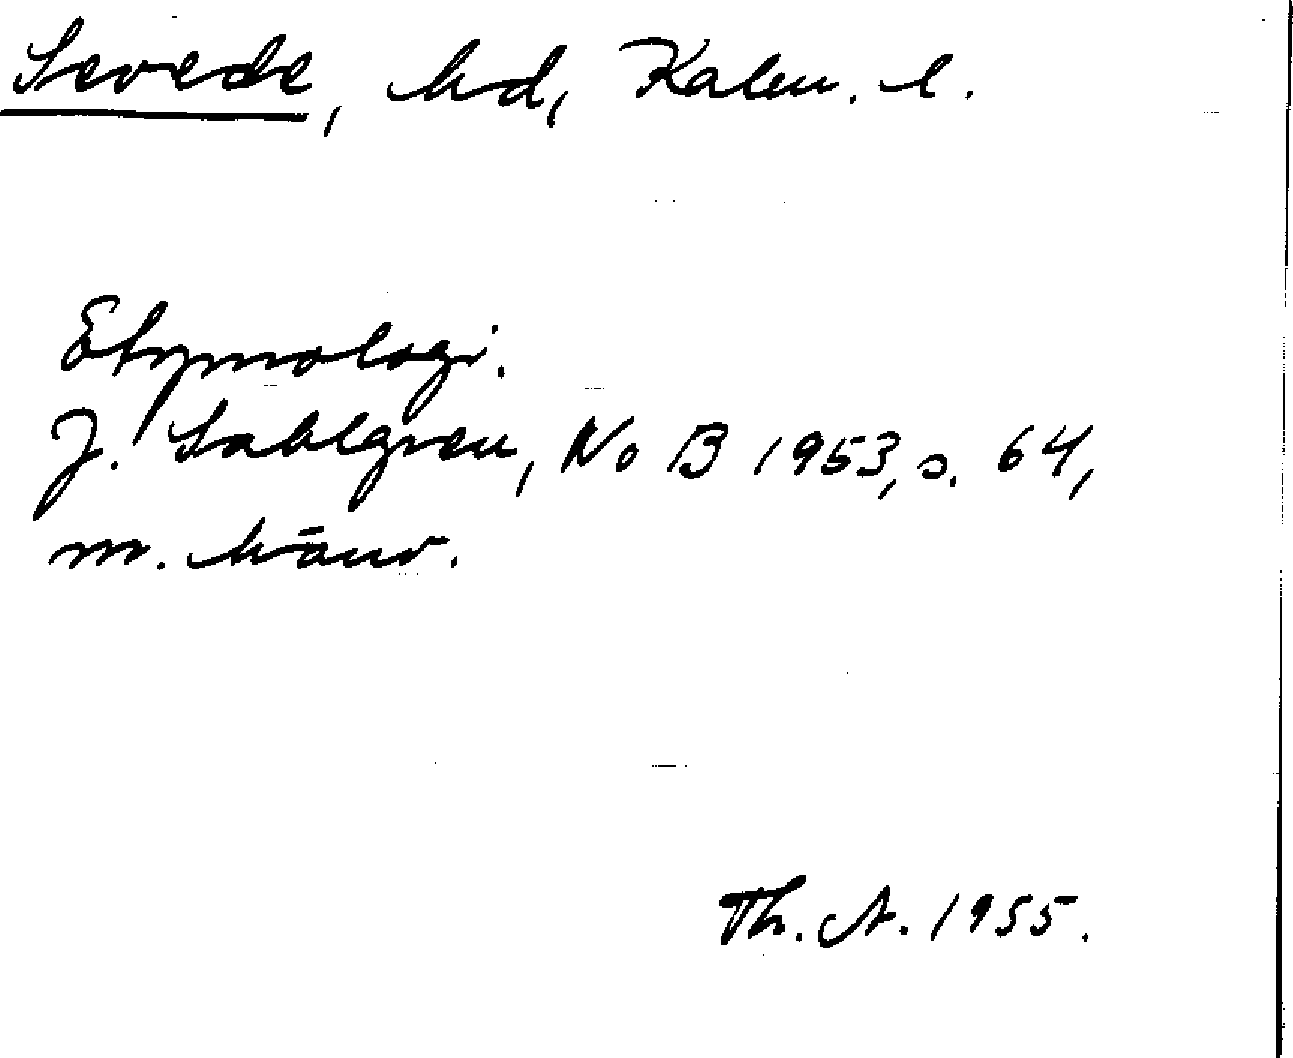 Sevede, hd, Kalm. l.
Etymologi.
J. Sahlgren, NoB 1953, s. 64,
m. hänv.
Th. A. 1955.